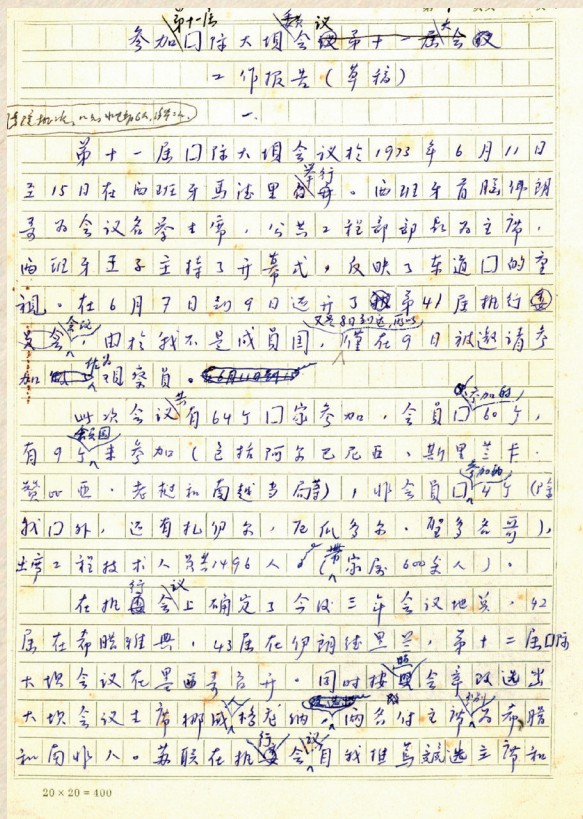 第十一届
参加囗际大坝会议第十一届大会
工作报告(草稿)
一.
第十一届囗际大坝会议於1973年6月11日
至15日在西班牙马德里举行。西班牙首脑佛朗
哥为会议名誉主席,公共工程部部长为主席,
西班牙王子主持了开幕式,反映了东道囗的重
视。在6月7日到9日还开了第41届执行
会议,由於我不是成员国,又是8日到达,所以仅在9日被邀请参
加作为观察员。
此次会议共有64个囗家参加,会员囗参加的60个,
有9个会员国未参加(包括阿尔巴尼亚、斯里兰卡、
赞比亚、老挝和南越当局等),非会员囗参加的4个(除
我囗外,还有扎伊尔,厄瓜多尔、圣多各哥),
出席工程技术人员共1496人(带家属600多人)。
在执行会议上确定了今后三年会议地点,42
届在希腊雅典,43届在伊朗德黑兰,第十二届囗际
大坝会议在墨西哥召开。同时按照会章改选出
大坝会议主席挪威格龙纳。两名付主席为希腊
和南非人。苏联在执行会议自我推荐竞选主席和
20×20=400